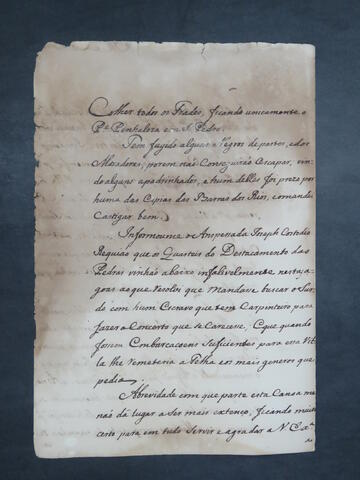 Colher todos os Frades, ficando unicamente o
Pe. Penhaloza em S. Pedro.
Tem fugido alguns Negros de partes, e dos
Moradores; porem não Conseguirão Escapar, vin-
do alguns apadrinhados, e hum delles foi prezo por
huma das Espias das Barras dos Rios, e o mandei
Castigar bem.
Informoume o Anspesada Joseph Custodio
Requião que os Quarteis do Destacamento das
Pedras vinhão abaixo infalivelmente nestas a-
goas ao que resolvi que mandava buscar o Sar-
do com hum Escravo que tem Carpinteiro para
fazer o Concerto que se Carecese; e que quando
fossem Embarcaçoens Suficientes para essa Vil-
la lhe remeteria a Telha e os mais generos que
pedia.
A brevidade com que parte esta Canoa me
não dá lugar a ser mais extenço, ficando muito
certo para em tudo servir e agradar a V. Exa.